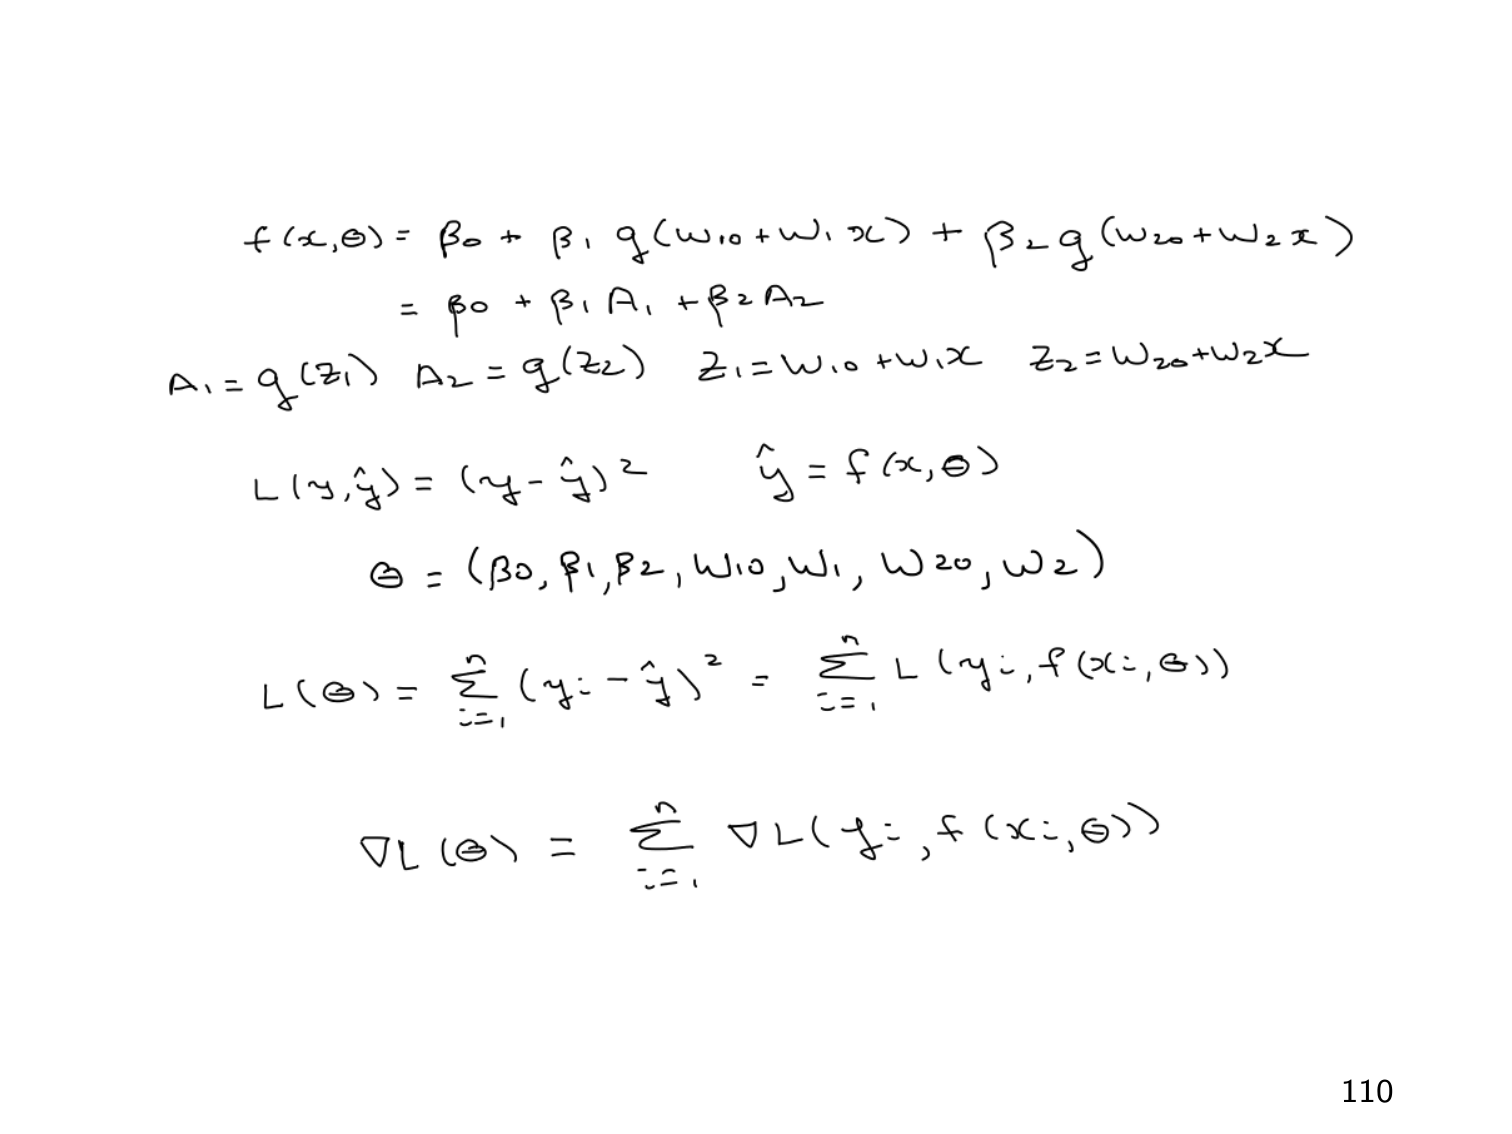 f(x,θ) = β0 + β1 g(w10 + w1 x) + β2 g(w20 + w2 x)
= β0 + β1 A1 + β2 A2
A1 = g(z1) A2 = g(z2) z1 = w10 + w1x z2 = w20 + w2x
L(y,ŷ) = (y - ŷ)² ŷ = f(x,θ)
θ = (β0, β1, β2, w10, w1, w20, w2)
L(θ) = ∑_{i=1}^{n} (yi - ŷ)² = ∑_{i=1}^{n} L(yi, f(xi,θ))
∇L(θ) = ∑_{i=1}^{n} ∇L(yi, f(xi,θ))
110